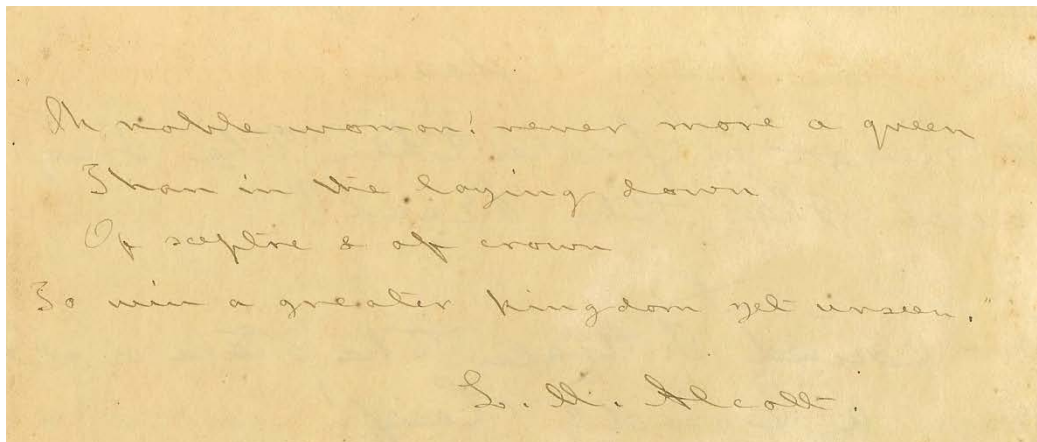 Oh noble woman! never more a queen
Than in the laying down
Of sceptre & of crown
To win a greater kingdom yet unseen."
L. M. Alcott.